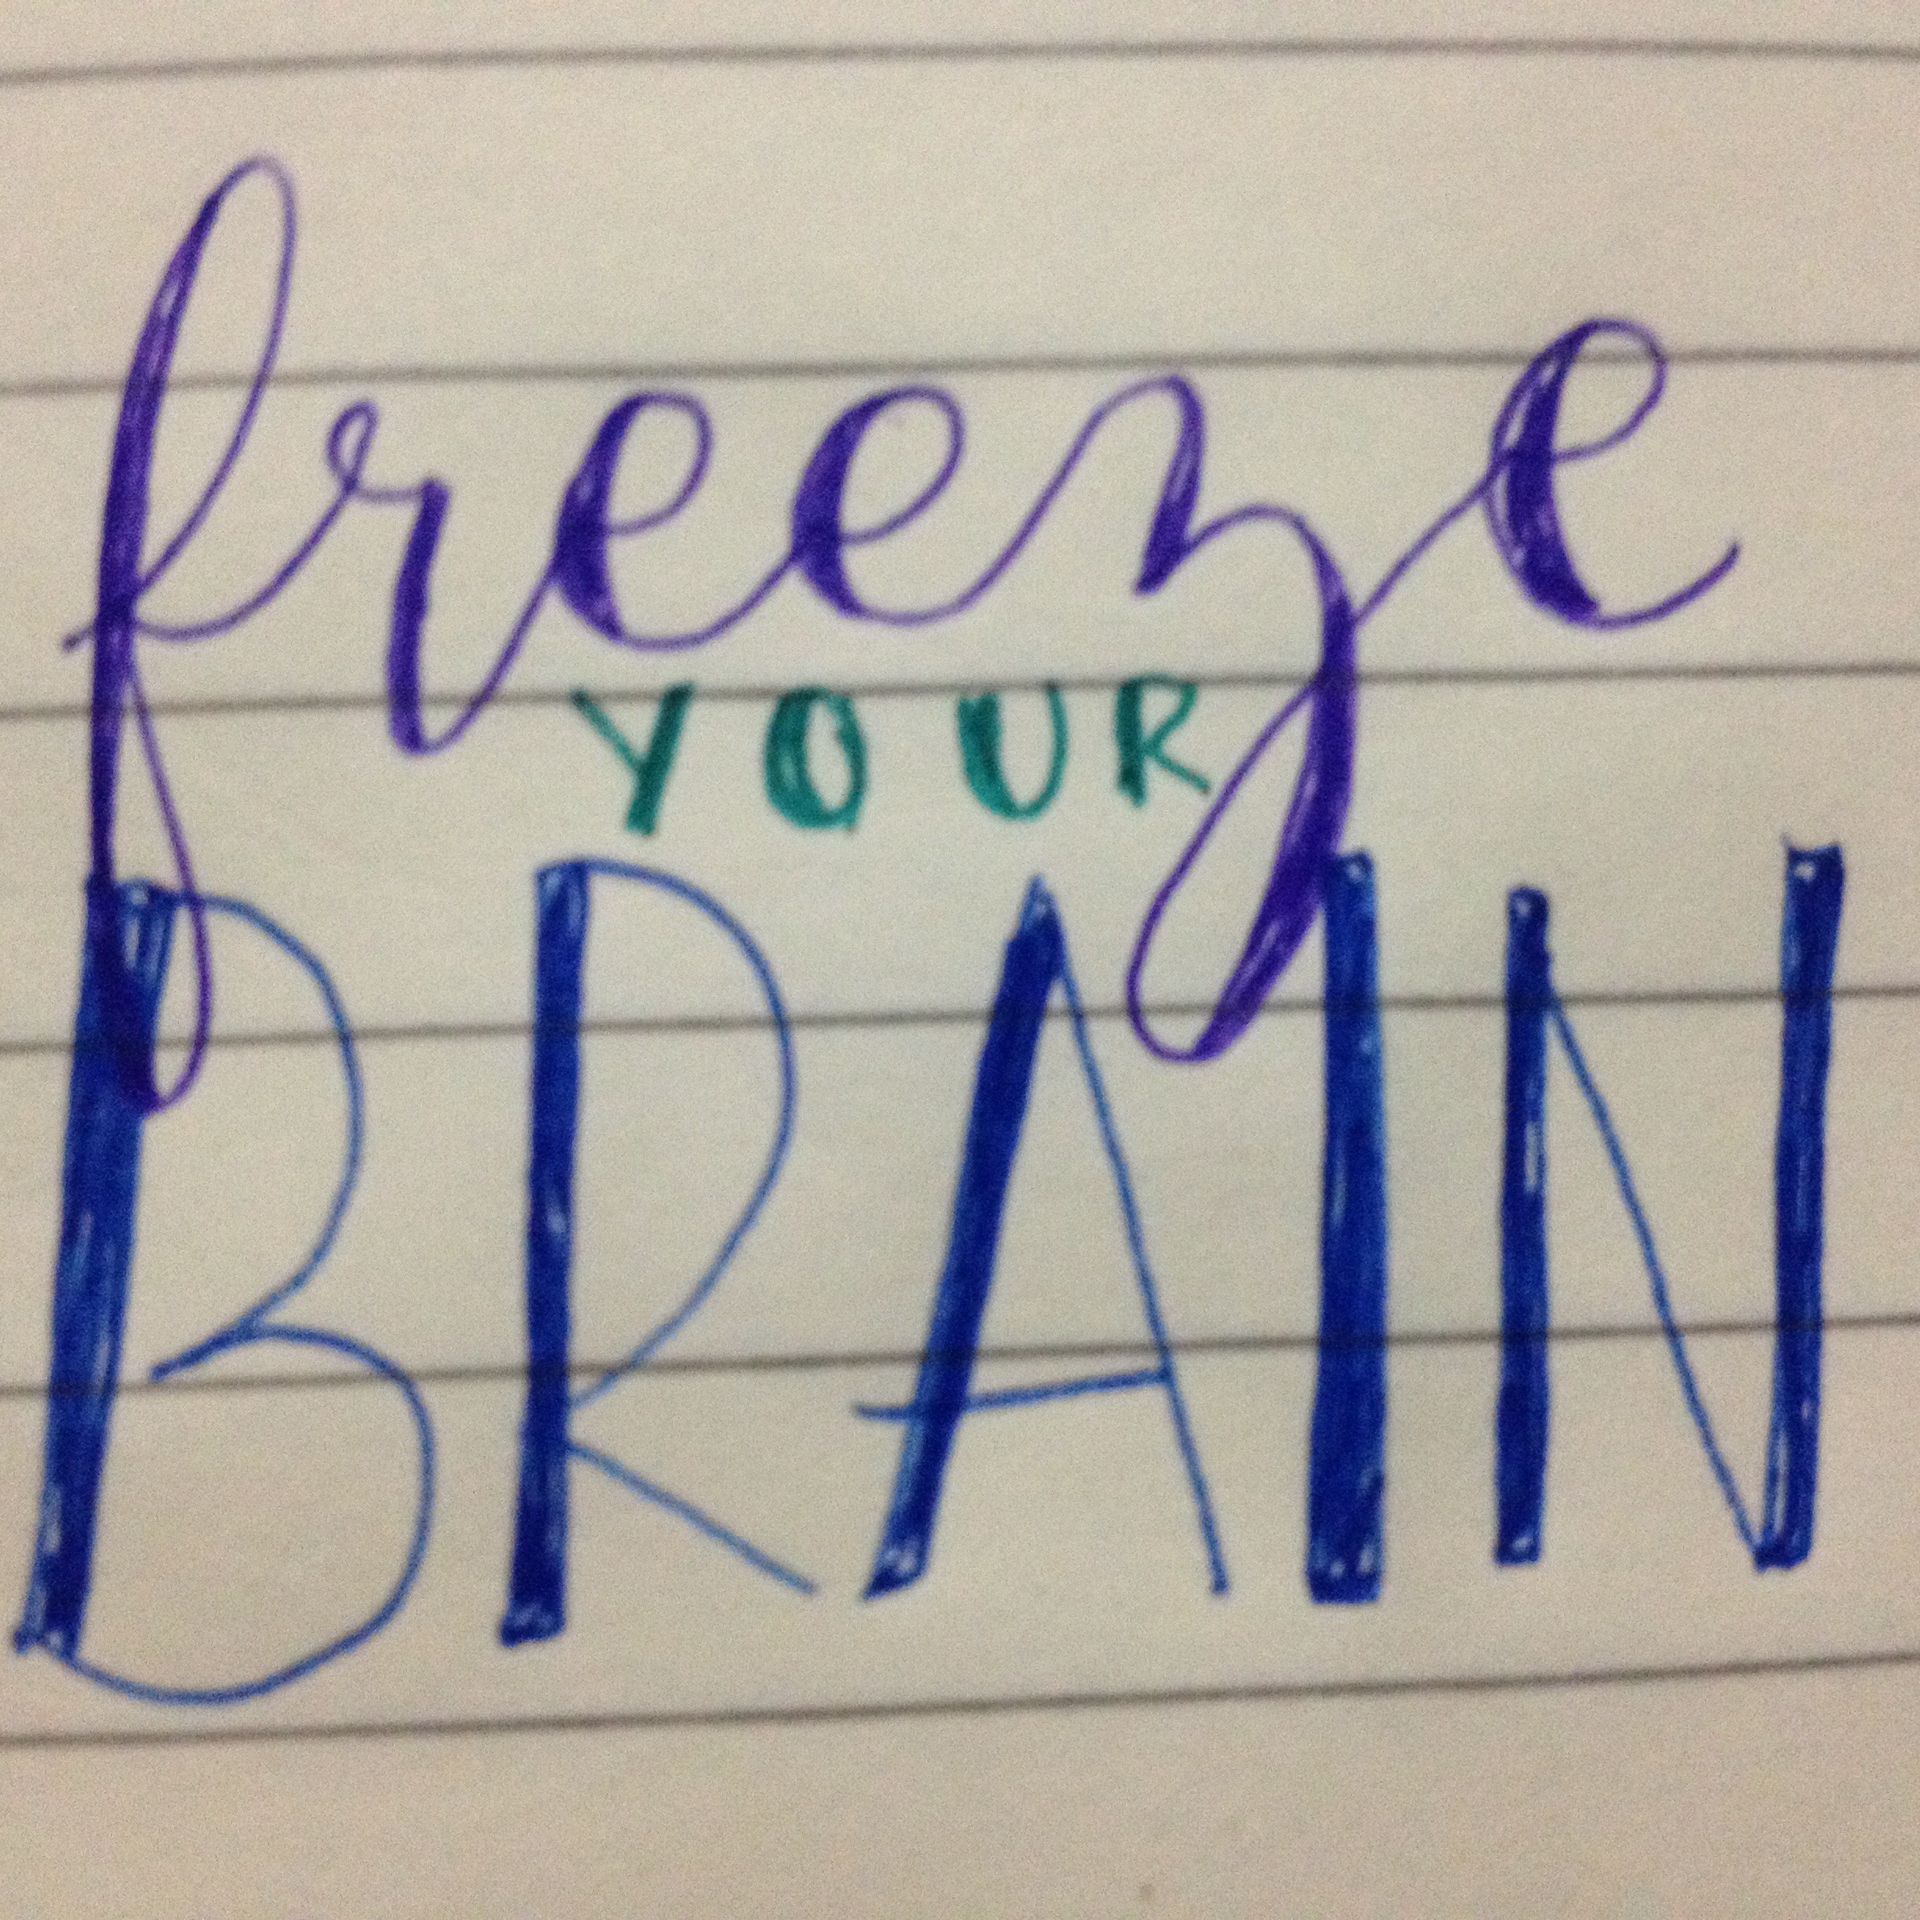 freeze
YOUR
BRAIN